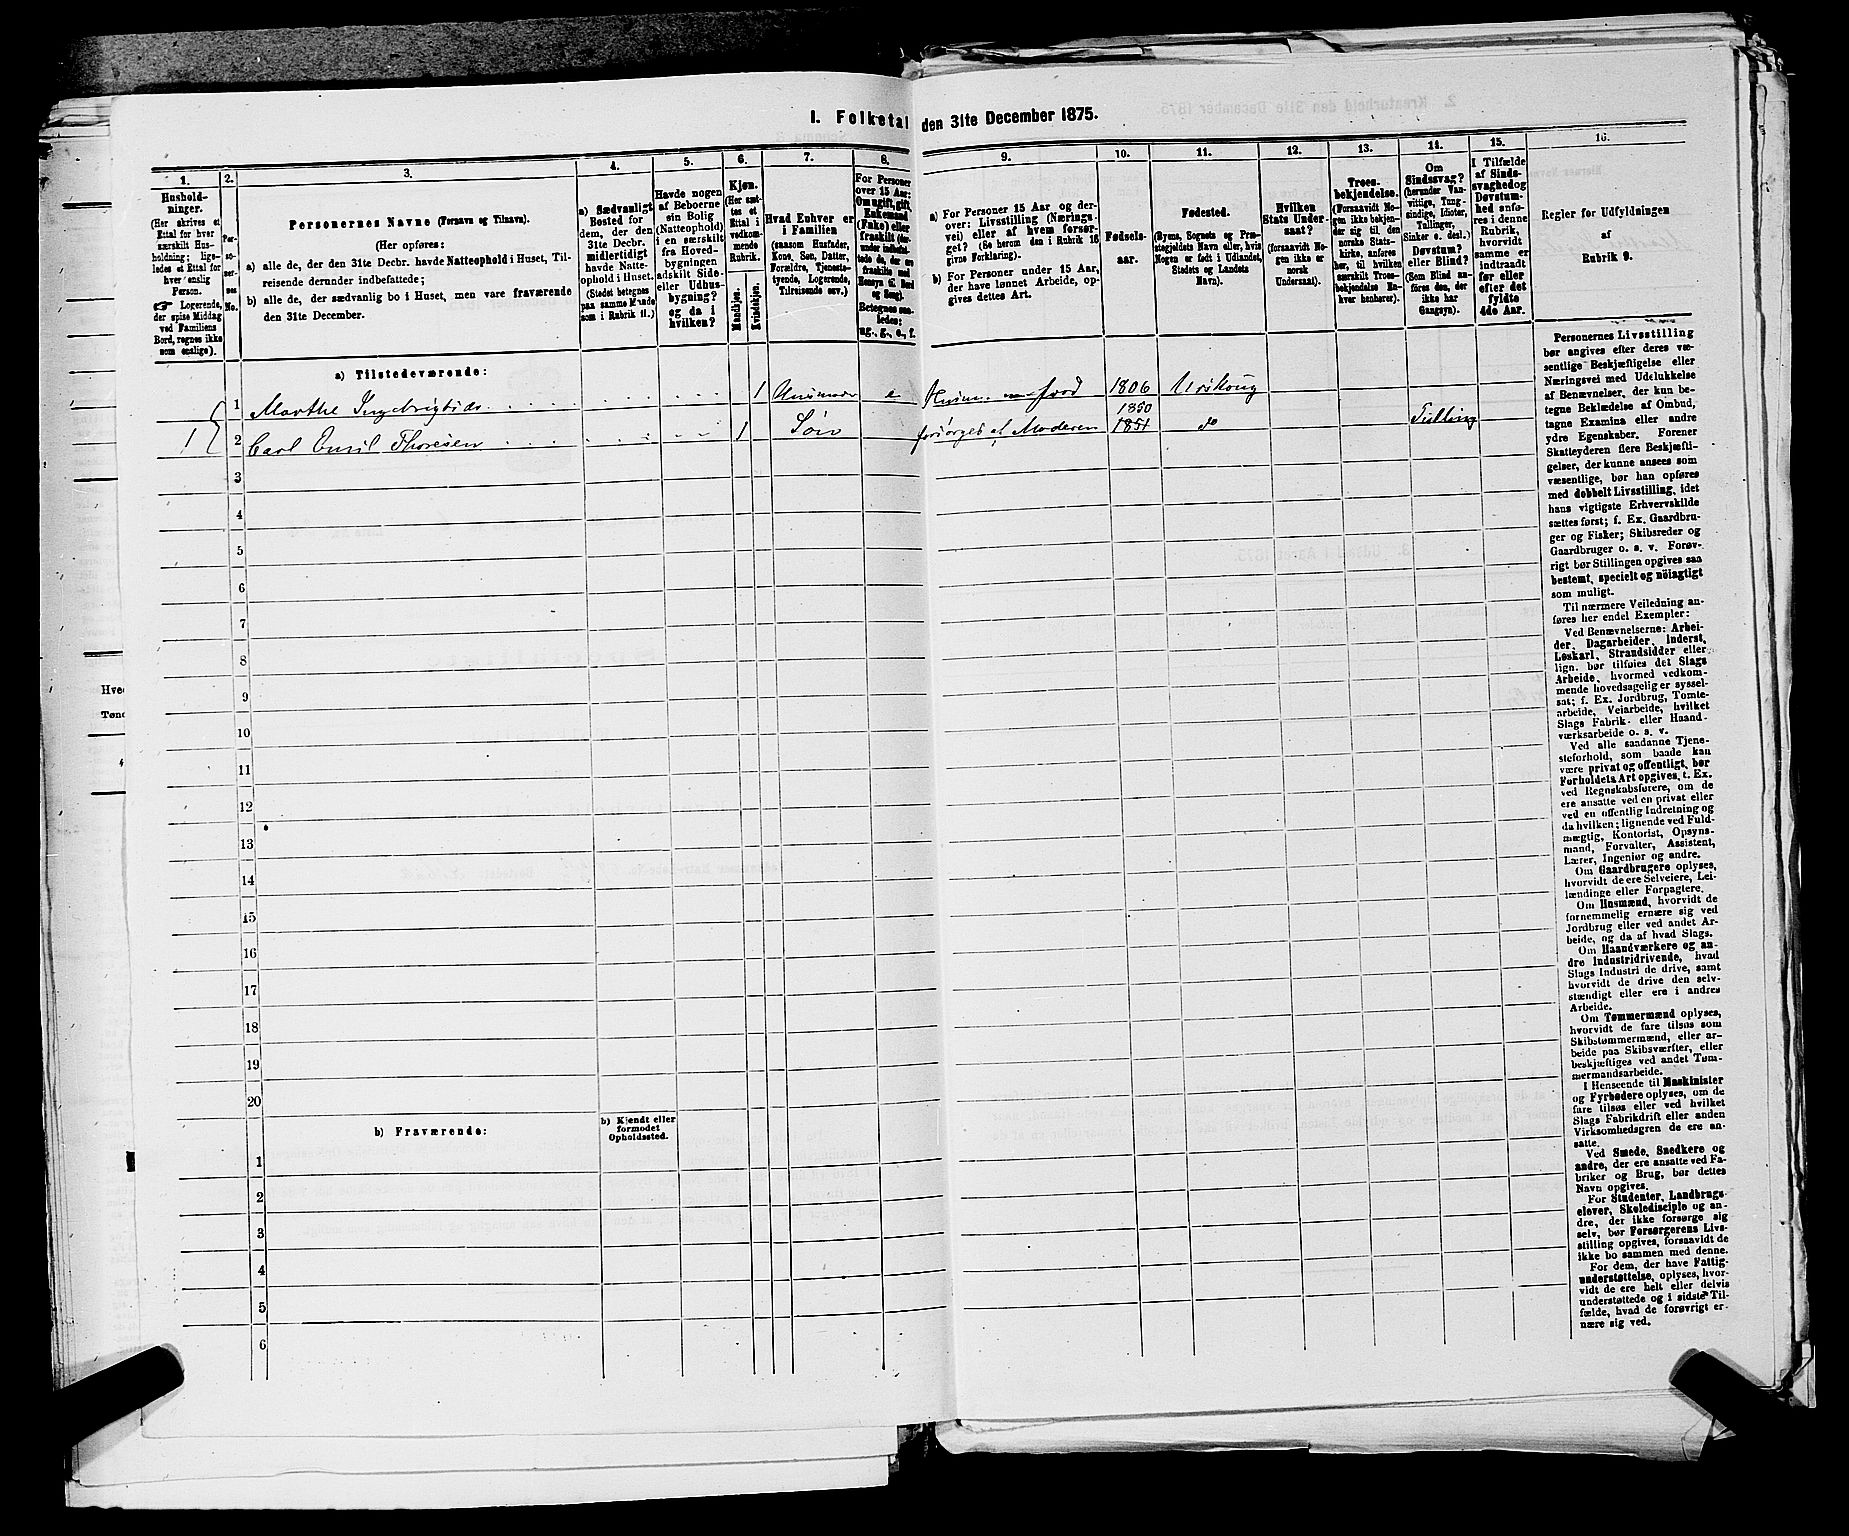 I. Folketal den 31te December 1875.
1.
Hushold-
ninger.
(Her skrives et
Ettal for hver
særskilt Hus-
holdning; lige-
ledes et Ettal for
hver enslig
Person.
☞ Logerende,
der spise Middag
ved Familiens
Bord, regnes ikke
som enslige).
2.
Per-
so-
ner-
nes
No.
3.
Personernes Navne (Fornavn og Tilnavn).
(Her opføres:
a) alle de, der den 31te Decbr. havde Natteophold i Huset, Til-
reisende derunder indbefattede;
b) alle de, der sædvanlig bo i Huset, men vare fraværende
den 31te December.
4.
a) Sædvanligt
Bosted for
dem, der den
31te Decbr.
midlertidigt
havde Natte-
ophold i Huset.
(Stedet betegnes
paa samme Maade
som i Rubrik 11.)
5.
Havde nogen
af Beboerne
sin Bolig
(Natteophold)
i en særskilt
fra Hoved-
bygningen
adskilt Side-
eller Udhus-
bygning?
og da i
hvilken?
6.
Kjøn.
(Her sæt-
tes et
Ettal i
vedkom-
mende
Rubrik.
Mandkjøn.
Kvindekjøn.
7.
Hvad Enhver er
i Familien
(saasom Husfader,
Kone, Søn, Datter,
Forældre, Tjeneste-
tyende, Logerende,
Tilreisende osv.)
8.
For Personer
over 15 Aar:
Om ugift, gift,
Enkemand
(Enke) eller
fraskilt (der-
under indbefat-
tede de, der ere
fraskilte med
Hensyn til Bord
og Seng).
Betegnes saa-
ledes:
ug., g., e., f.
9.
a) For Personer 15 Aar og der-
over: Livsstilling (Nærings-
vei) eller af hvem forsør-
get? (Se herom den i Rubrik 16
givne Forklaring).
b) For Personer under 15 Aar,
der have lønnet Arbeide, op-
gives dettes Art.
10.
Fødsels-
aar.
11.
Fødested.
(Byens, Sognets og Præ-
stegjeldets Navn eller, hvis
Nogen er født i Udlandet,
Stedets og Landets
Navn).
12.
Hvilken
Stats Under-
saat?
(forsaavidt No-
gen ikke er
norsk
Undersaat).
13.
Troes-
bekjendelse.
(Forsaavidt No-
gen ikke bekjen-
der sig til den
norske Stats-
kirke, anføres
her, til hvilken
særskilt Troes-
bekjendelse En-
hver henhører).
14.
Om
Sindssvag?
(herunder Van-
vittige, Tung-
sindige, Idioter,
Tullinger,
Sinker o. desl.)
Døvstum?
eller Blind?
(Som Blind an-
føres den, der
ikke har
Gangsyn).
15.
I Tilfælde
af Sinds-
svaghed og
Døvstum-
hed anfø-
res i denne
Rubrik,
hvorvidt
samme er
indtraadt
før eller
efter det
fyldte
4de Aar.
16.
Regler for Udfyldningen
af
Rubrik 9.
a) Tilstedeværende:
1 Marthe Ingebrigtsdr. 1 Husmoder e 1806 Urskoug
1850
1 2 Carl Emil Thoresen 1 Søn forsørges af Moderen 1851 do Tulling
3
4
5
6
7
8
9
10
11
12
13
14
15
16
17
18
19
20
b) Fraværende:
b) Kjendt eller
formodet
Opholdssted.
1
2
3
4
5
6
Personernes Livsstilling
bør angives efter deres væ-
sentlige Beskjæftigelse eller
Næringsvei med Udelukkelse
af Benævnelser, der kun be-
tegne Beklædelse af Ombud,
tagne Examina eller andre
ydre Egenskaber. Forener
Skatteyderen flere Beskjæfti-
gelser, der kunne ansees som
væsentlige, bør han opføres
med dobbelt Livsstilling, idet
hans vigtigste Erhvervskilde
sættes først; f. Ex. Gaardbru-
ger og Fisker; Skibsreder og
Gaardbruger o. s. v. Forøv-
rigt bør Stillingen opgives saa
bestemt, specielt og nöiagtigt
som muligt.
Til nærmere Veiledning an-
føres her endel Exempler:
Ved Benævnelserne: Arbei-
der, Dagarbeider, Inderst,
Løskarl, Strandsidder eller
lign. bør tilføies det Slags
Arbeide, hvormed vedkom-
mende hovedsagelig er syssel-
sat; f. Ex. Jordbrug, Tomte-
arbeide, Veiarbeide, hvilket
Slags Fabrik- eller Haand-
værksarbeide o. s. v.
Ved alle saadanne Tjene-
steforhold, som baade kan
være privat og offentligt, bør
Forholdets Art opgives, t. Ex.
ved Regnskabsførere, om de
ere ansatte ved en privat eller
ved en offentlig Indretning og
da hvilken; lignende ved Fuld-
mægtig, Kontorist, Opsyns-
mand, Forvalter, Assistent,
Lærer, Ingeniør og andre.
Om Gaardbrugere oplyses,
hvorvidt de ere Selveiere, Lei-
lændinge eller Forpagtere.
Om Husmænd, hvorvidt de
fornemmelig ernære sig ved
Jordbrug eller ved andet Ar-
beide, og da af hvad Slags.
Om Haandværkere og an-
dre Industridrivende, hvad
Slags Industri de drive, samt
hvorvidt de drive den selv-
stændigt eller ere i andres
Arbeide.
Om Tømmermænd oplyses,
hvorvidt de fare tilsøs som
Skibstømmermænd, eller ar-
beide paa Skibsværfter, eller
beskjæftiges ved andet Tøm-
mermandsarbeide.
I Henseende til Maskinister
og Fyrbødere oplyses, om de
fare tilsøs eller ved hvilket
Slags Fabrikdrift eller anden
Virksomhedsgren de ere an-
satte.
Ved Smede, Snedkere og
andre, der ere ansatte ved Fa-
briker og Brug, bør dettes
Navn opgives.
For Studenter, Landbrugs-
elever, Skoledisciple og an-
dre, der ikke forsørge sig
selv, bør Forsørgerens Livs-
stilling opgives, forsaavidt de
ikke bo sammen med denne.
For dem, der have Fattig-
understøttelse, oplyses, hvor-
vidt de ere helt eller delvis
understøttede og i sidste Til-
fælde, hvad de forøvrigt er-
nære sig ved.